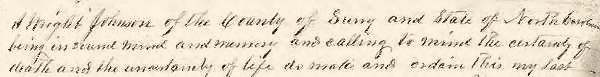 A Wright Johnson of the County of Surry and State of North Carolina
being in sound mind and memory and calling to mind the certainty of
death and the uncertainty of life do make and ordain this my last